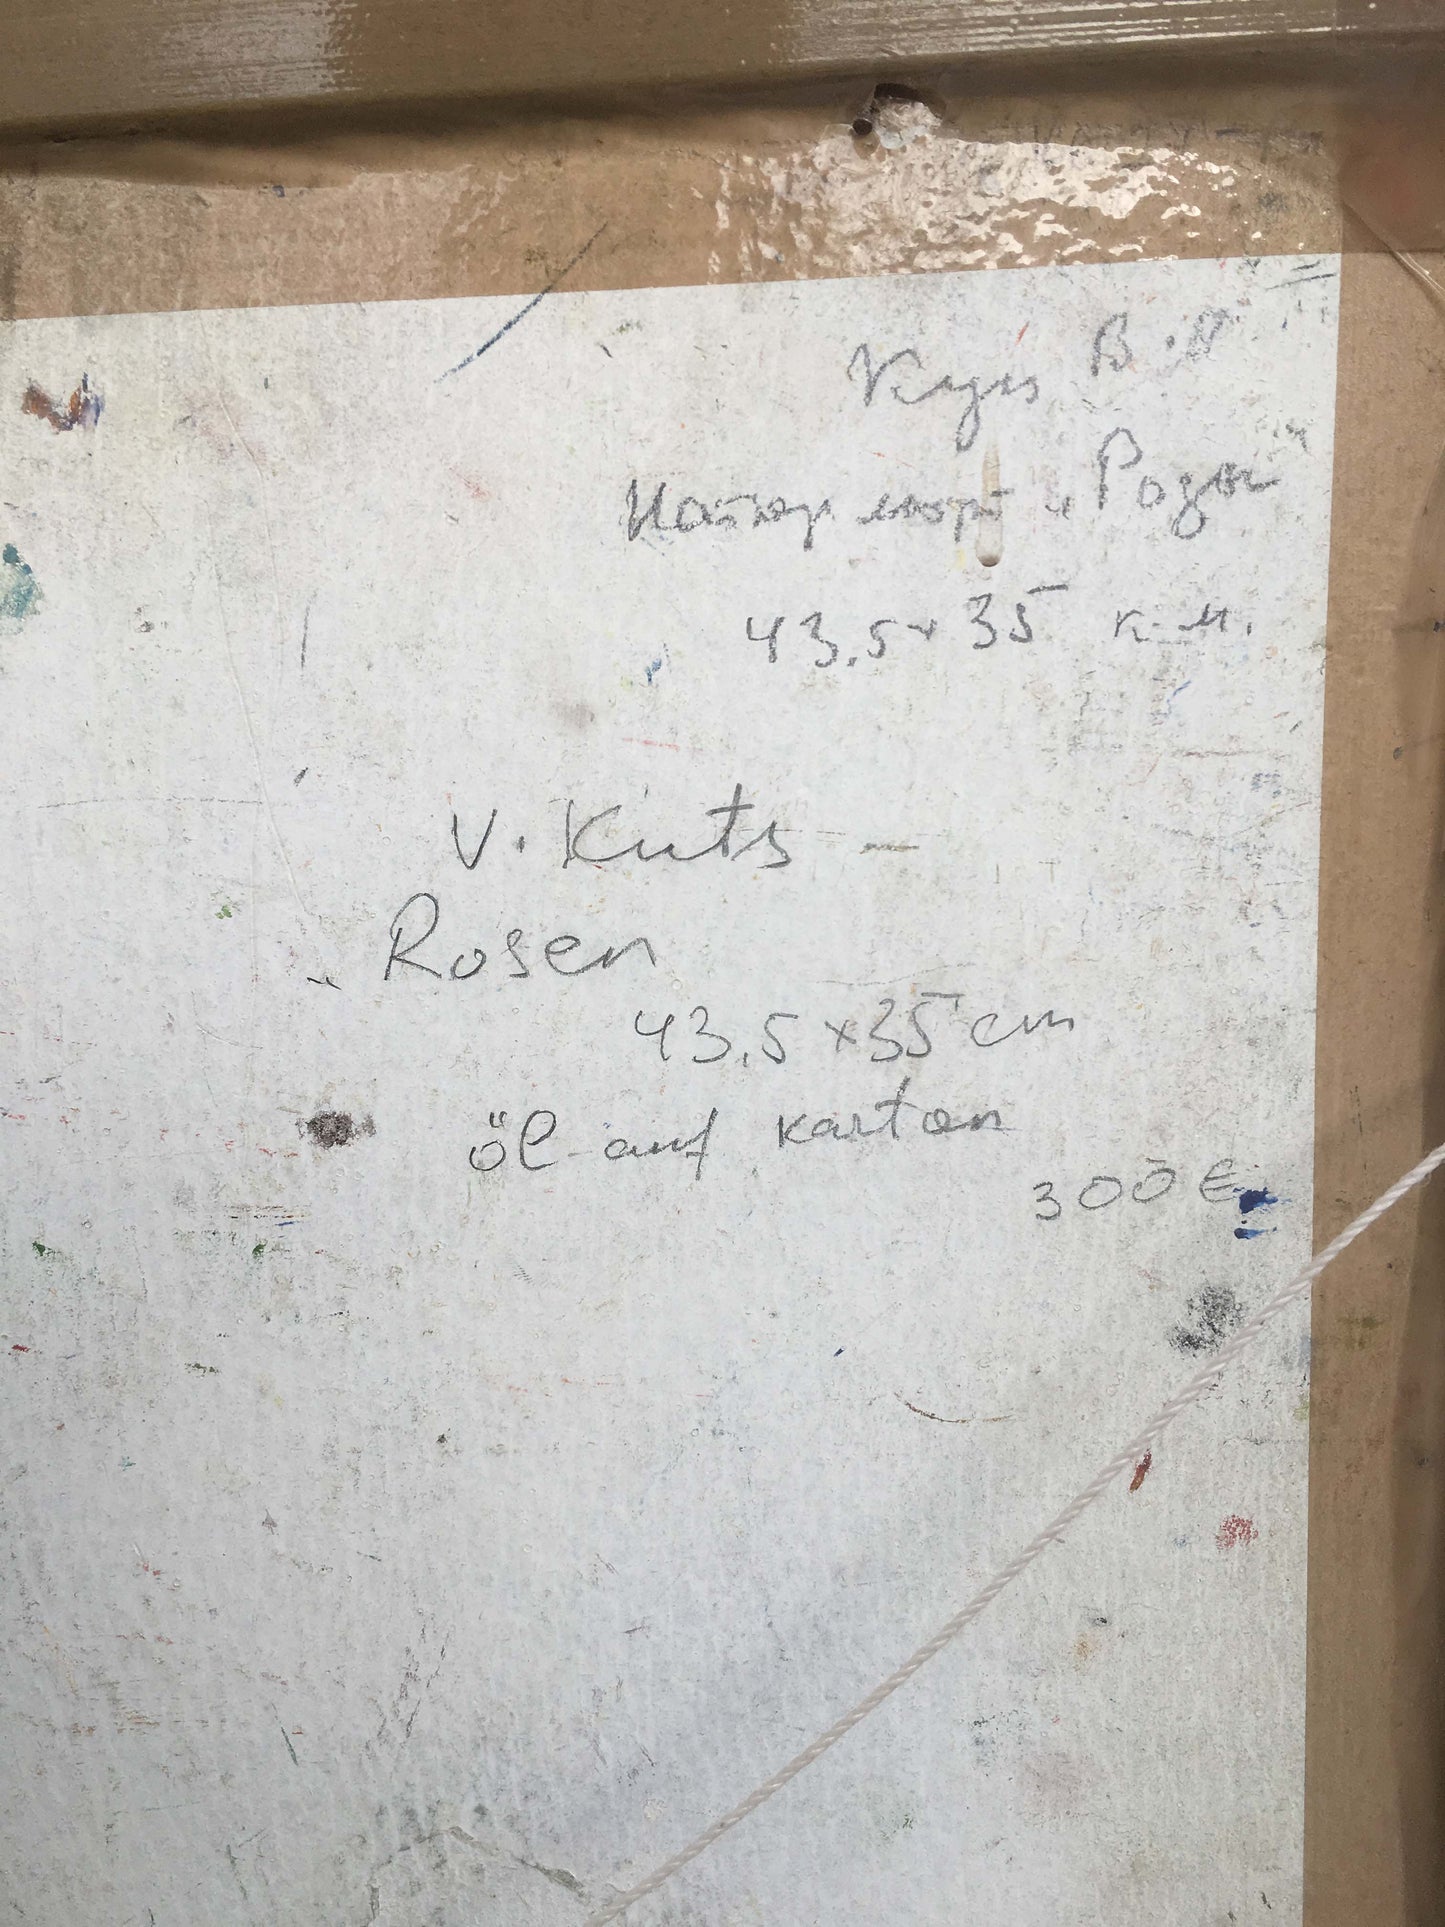 Куц В.И
Натюрморт "Розы"
43.5 × 35 к.м.
V. Kuts
„Rosen
43.5 × 35 cm
öl auf karton
300 €